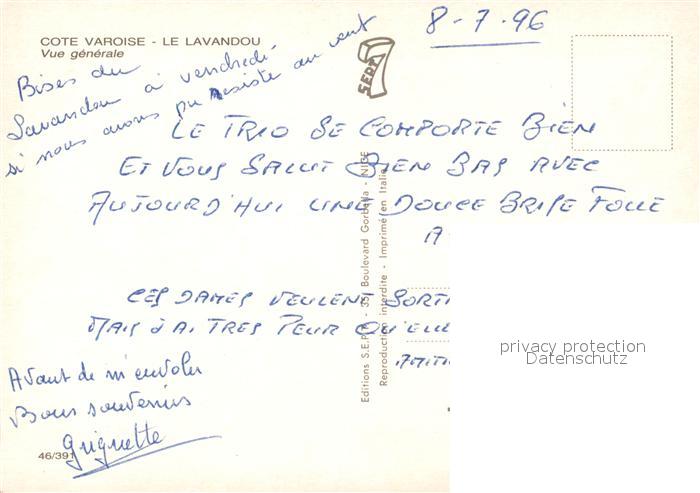 COTE VAROISE - LE LAVANDOU
Vue générale
8-7-96
SEPT
Bises du
Lavandou à vendredi
si nous avons pu resiste au vent
LE TRIO SE COMPORTE BIEN
ET VOUS SALUT BIEN BAS AVEC
AUTOURD'HUI UNE DOUCE BRISE FOLLE
A
CES DAMES VEULENT SORTI
MAIS J'AI TRES PEUR QU'ELL
AMITI
Avant de m'envoler
Bons souvenirs
Guiguette
46/391
Editions S.E.P.T. - 35, Boulevard Gorbella - NICE
Reproduction interdite - Imprimé en Italie
privacy protection
Datenschutz